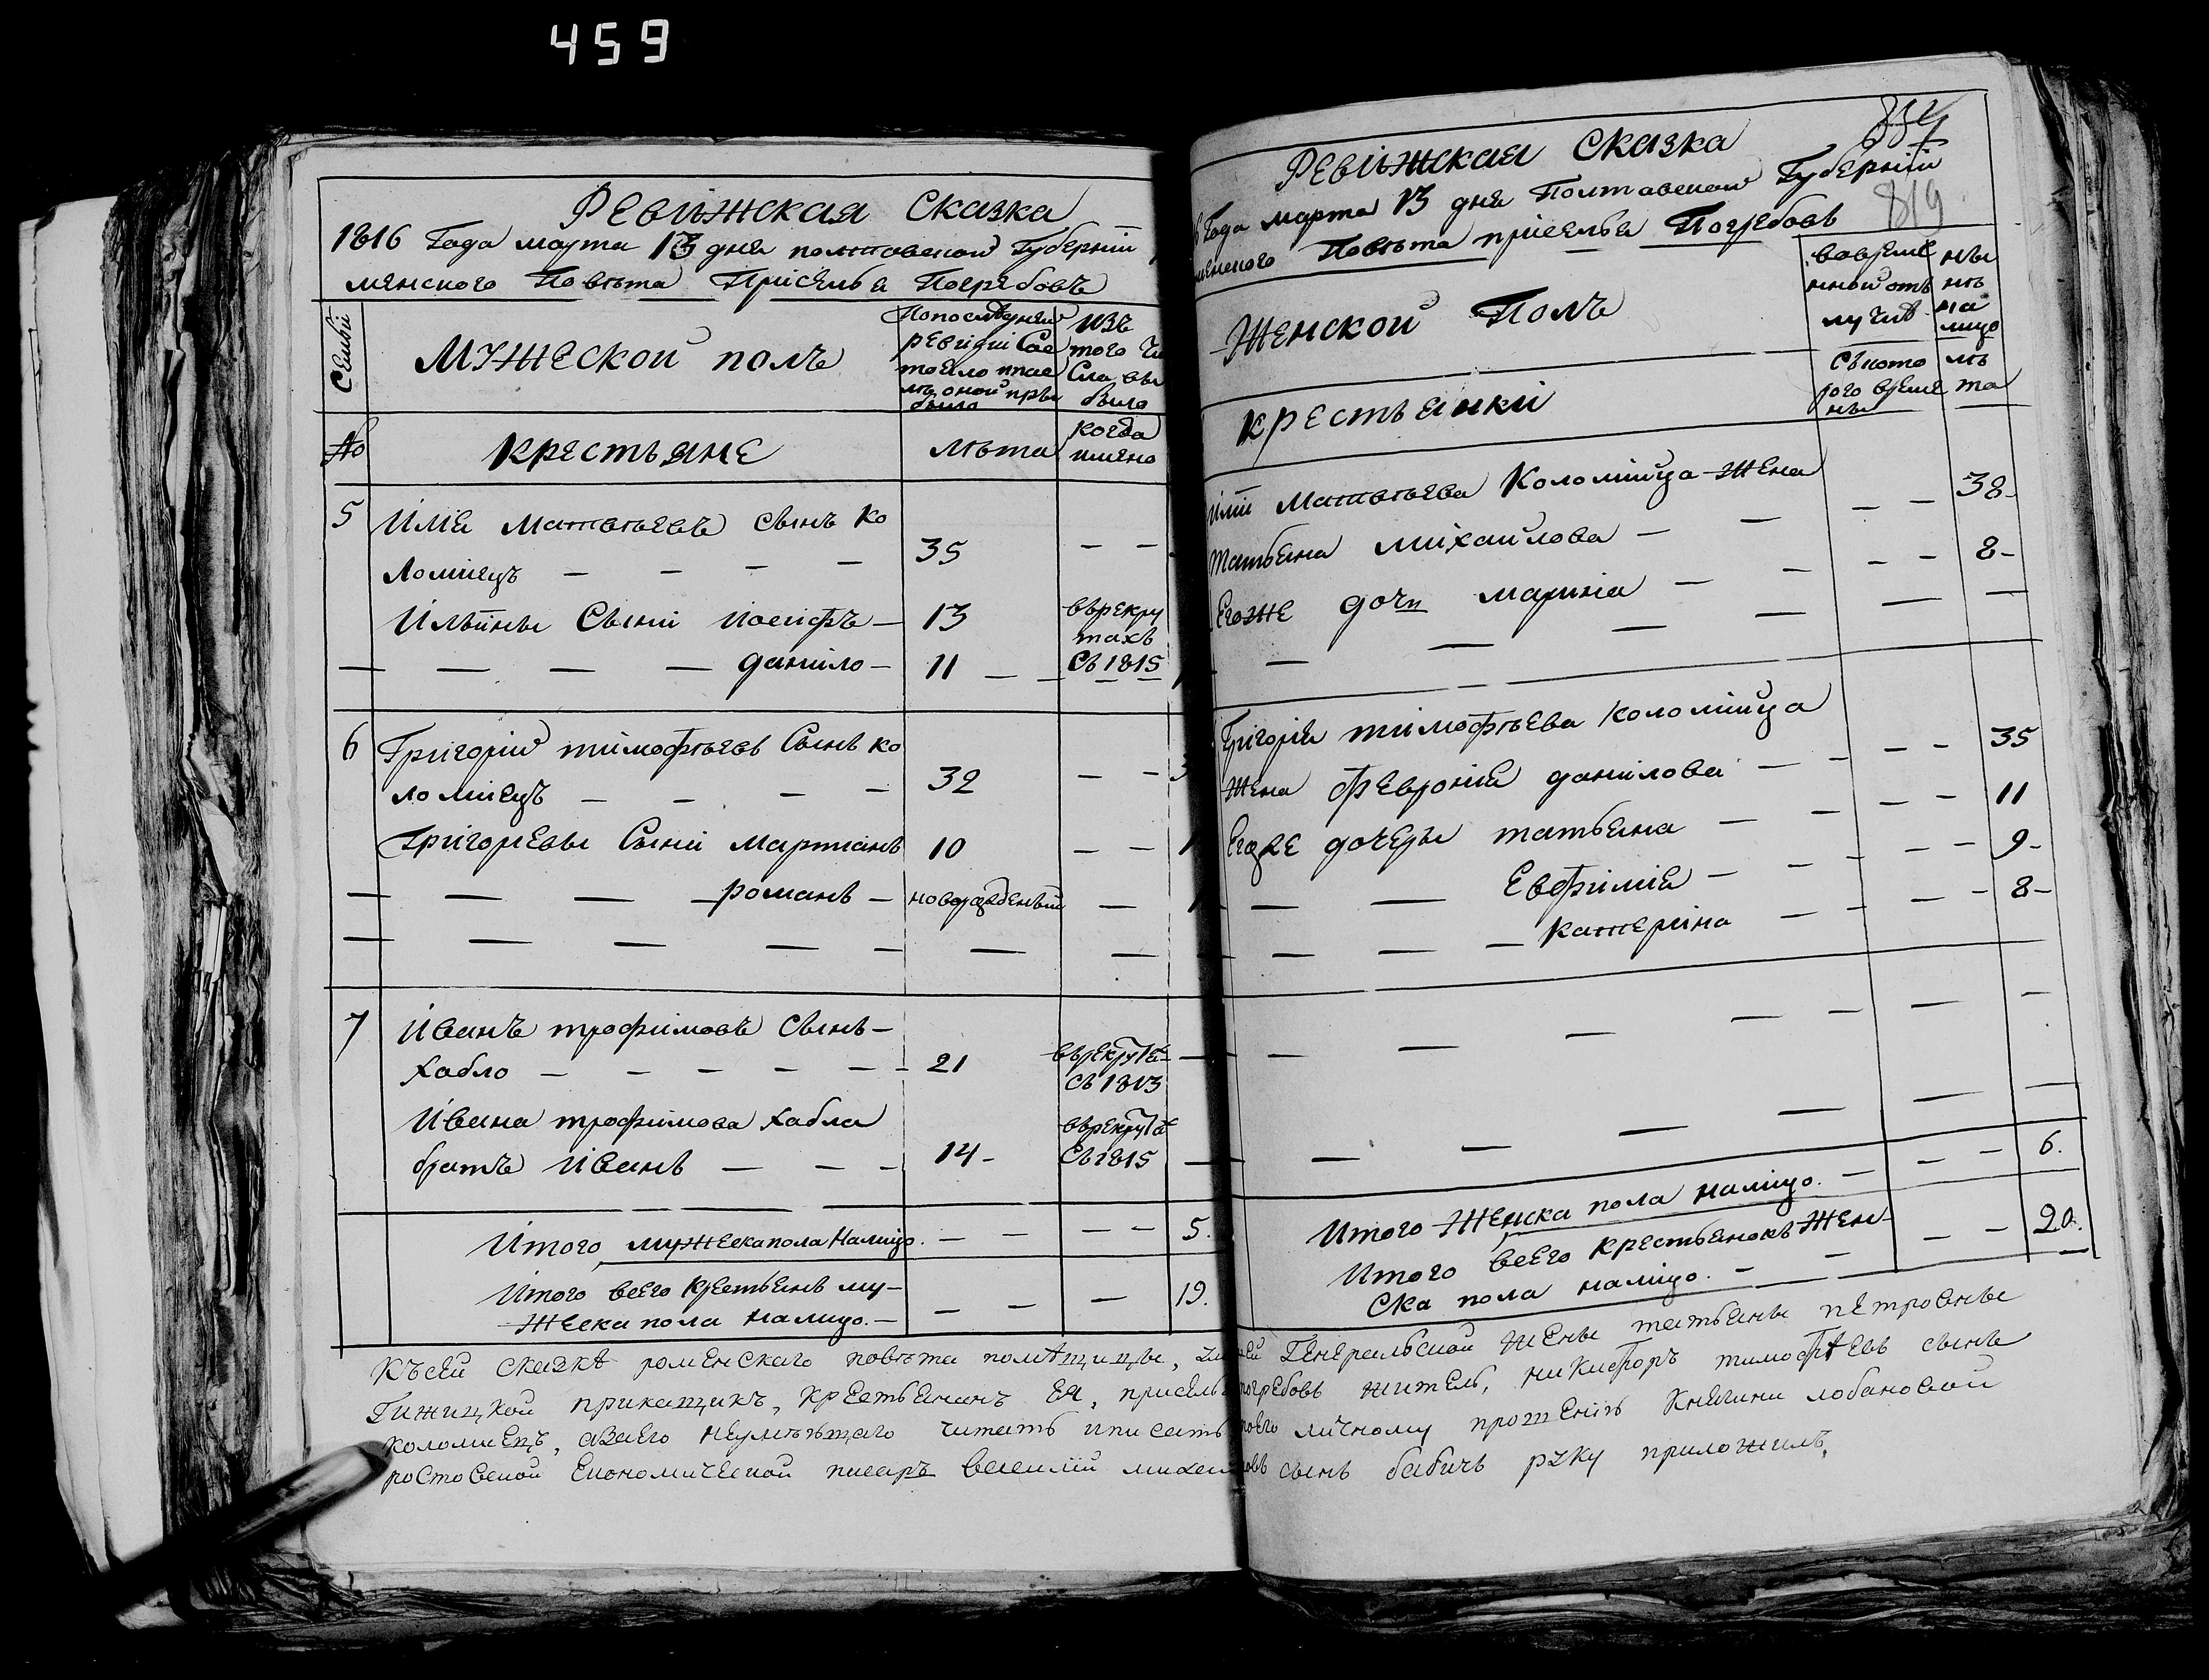 459
Ревижская Сказка
1816 Года марта 13 дня полтавской Губернїи
менского Повѣта Присѣлья Погребовъ
Семьи
Мужеской полъ
По последней ревизїи Сос
тояло и после оной при
было
изъ
того чи
Сла вы
было
№
крестьяне
лѣта
когда
имено
5
Илїя Матвѣевъ сынъ ко
ломїецъ — — — —
35
— —
Ильїны Сыни Иосифъ —
13
въ рекру
тахъ
— — — — данило —
11
Съ 1815
6
Григорїй тимофѣевъ Сынъ ко
ломїецъ — — — —
32
— —
Григорїевы Сыни Мартинъ
10
— —
— — — — романъ —
новорожденый
—
7
Иванъ трофимовъ Сынъ —
хабло — — — — — —
21
въ рекрута
съ 1813
Ивана трофимова хабла
братъ Иванъ — — —
14 -
въ рекрута
Съ 1815
Итого мужеска пола Налицо. — — — —
5.
Итого всего крестьянъ му-
жеска пола налицо. — — — —
19.
834
Ревижская Сказка
Года марта 13 дня Полтавской Губернїи
819
менского Повѣта присѣлья Погребовъ
Женской Полъ
вовреме
нной отъ
лучкѣ
ны
нѣ
на
лицо
крестьянки
Съ кото
рого време
ны
лѣ
та
Илїи Матвѣева Коломїйца Жена
Татьяна михайлова — —
— —
38 -
Егоже дочь марина — —
— —
8 -
Григорїя тимофѣева коломїйца
жена Февронїя данилова — —
— —
35
Егоже дочеры татьяна — —
— —
11
— — Евфимїя — —
— —
9 -
— — — катерина — —
— —
8 -
Итого Женска пола налицо. —
— —
6.
Итого всего крестьянокъ Жен-
ска пола налицо. — —
— —
20.
Къ сей сказкѣ роменскаго повѣта помѣщицы, генеральской жены татьяны петровны
Гижицкой прикащикъ, крестьянинъ ея, присѣлья погребовъ житель, никифоръ тимофѣевъ сынъ
коломиецъ, а за его неумѣющаго читать и писать по его личному прошенїю Княгини лобановой
ростовской економической писарь василїй михайловъ сынъ бабичъ руку приложилъ.